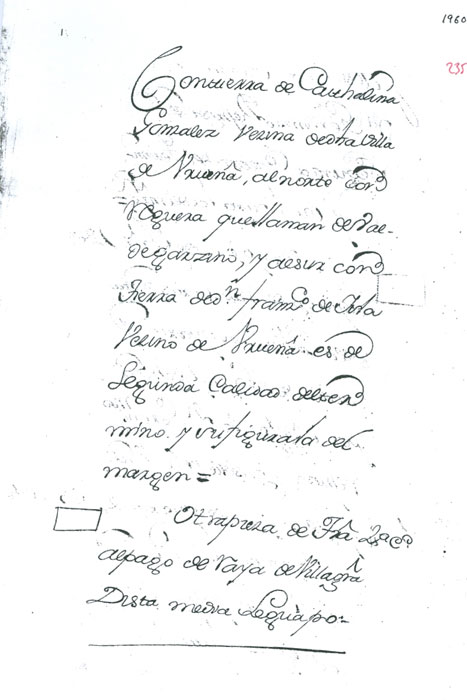 1960
235
Contierra de Cathalina
Gonzalez Vezina dedha Villa
de Urueña, al norte con
Reguera quellaman de Val-
degarzano, y alsur con
tierra de dn. franco. de Isla
Vezino de Urueña es de
Segunda Calidad delter
mino y su figura la del
margen =
Otra pieza de
alpago de Raya de Villagra
Dista media Legua po-